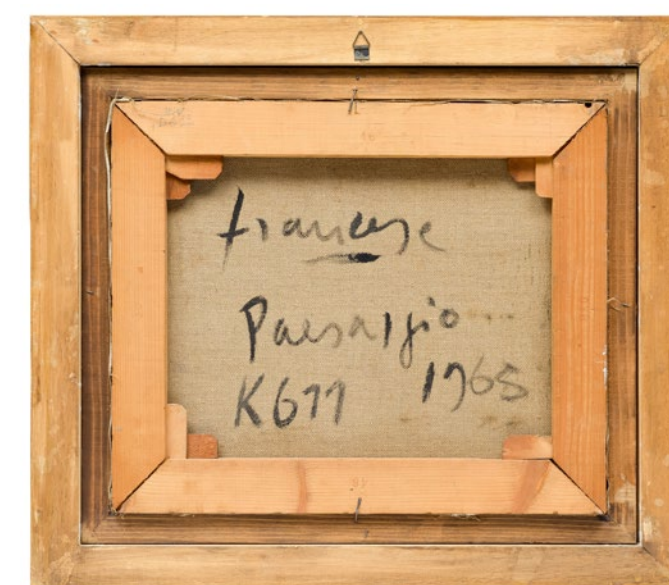 francese
Paesaggio
K611 1965